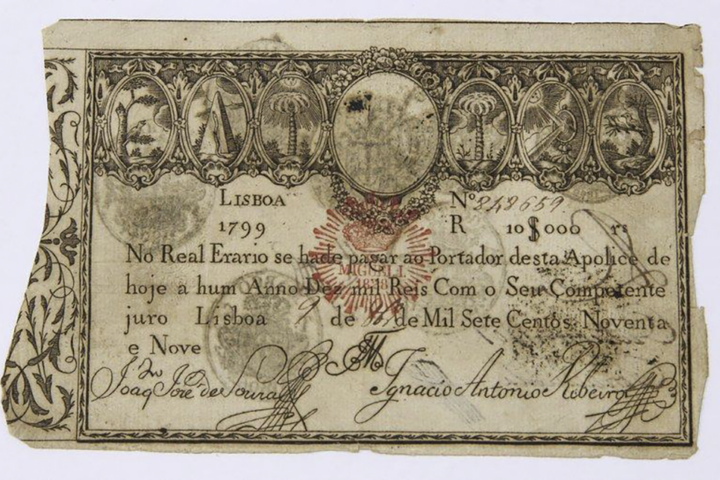 LISBOA Nº 248659
1799 R 10$000 rs
No Real Erario se hade pagar ao Portador desta Apolice de
hoje a hum Anno Dez mil Reis Com o Seu Competente
juro Lisboa 9 de de Mil Sete Centos, Noventa
e Nove
Joaq Joze de Souza Ignacio Antonio Ribeiro
MIGUEL I.
1828